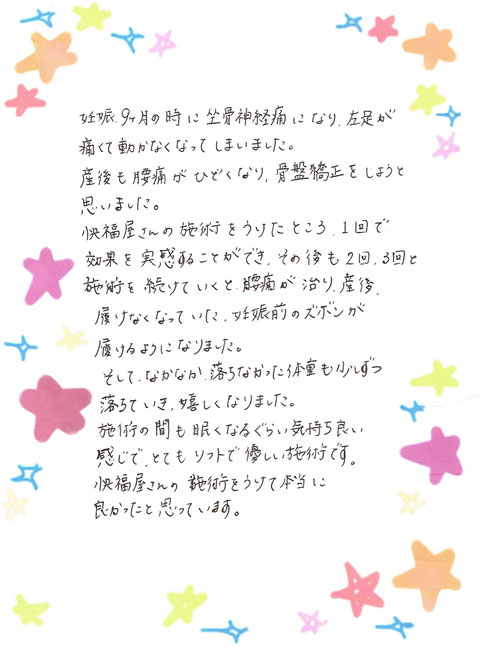 妊娠9ヶ月の時に坐骨神経痛になり、左足が
痛くて動かなくなってしまいました。
産後も腰痛がひどくなり、骨盤矯正をしようと
思いました。
快福屋さんの施術をうけたところ、1回で
効果を実感することができ、その後も2回、3回と
施術を続けていくと、腰痛が治り、産後、
履けなくなっていた、妊娠前のズボンが
履けるようになりました。
そして、なかなか、落ちなかった体重も少しずつ
落ちていき、嬉しくなりました。
施術の間も眠くなるぐらい気持ち良い
感じで、とてもソフトで優しい施術です。
快福屋さんの施術をうけて本当に
良かったと思っています。